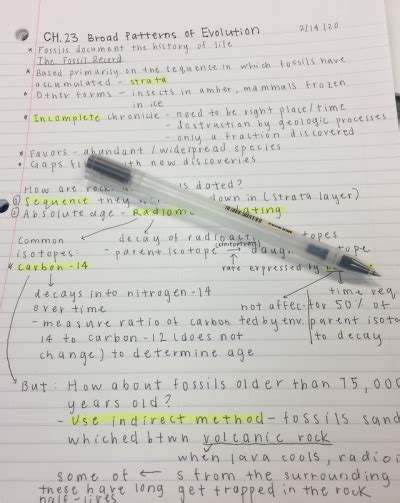 CH.23 Broad Patterns of Evolution 2/14/20
* Fossils document the history of life
The Fossil Record
* Based primarily on the sequence in which fossils have
accumulated - strata
* Other forms - insects in amber, mammals frozen
in ice
* Incomplete chronicle - need to be right place/time
- destruction by geologic processes
- only a fraction discovered
* Favors - abundant/widespread species
* Gaps with new discoveries
How are rock is dated?
① Sequence they down in (strata layer)
② Absolute age - Radiom ating
Common decay of radioact topes
isotopes: - parent isotope (constant) → daug tope
* Carbon-14 rate expressed by
decays into nitrogen-14 time req
over time not affec- for 50% of
- measure ratio of carbon ted by env. parent isoto
14 to carbon-12 (does not to decay
change) to determine age
But: How about fossils older than 75,000
years old?
- Use indirect method - fossils sand
whiched btwn volcanic rock
when lava cools, radioi
some of ← s from the surrounding
these have long get trapped in the rock
half-lives